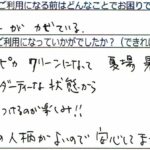 ご利用になる前はどんなことでお困りで
ーが かせている.
ご利用になっていかがでしたか？（できれ
ピカ クリーンになって 夏場
ダーティーな 状態から
つけるのが楽しみ!!
の人柄がよいので 安心してま